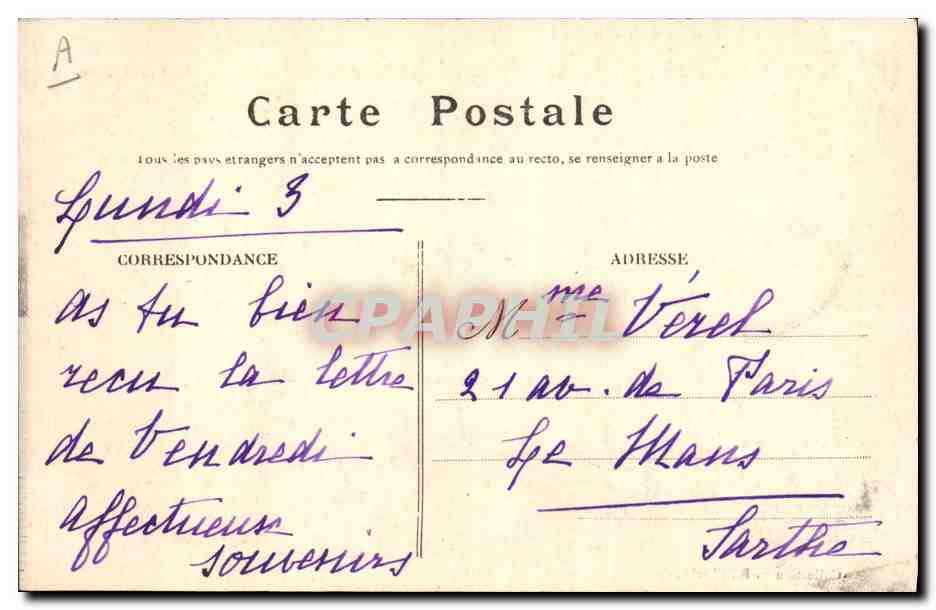 A
Carte Postale
Tous les pays etrangers n'acceptent pas a correspondance au recto, se renseigner a la poste
Lundi 3
CORRESPONDANCE
as tu bien
recu la lettre
de Vendredi
affectueux
souvenirs
ADRESSE
Mme Vérel
21 av. de Paris
Le Mans
Sarthe
CPAPHIL